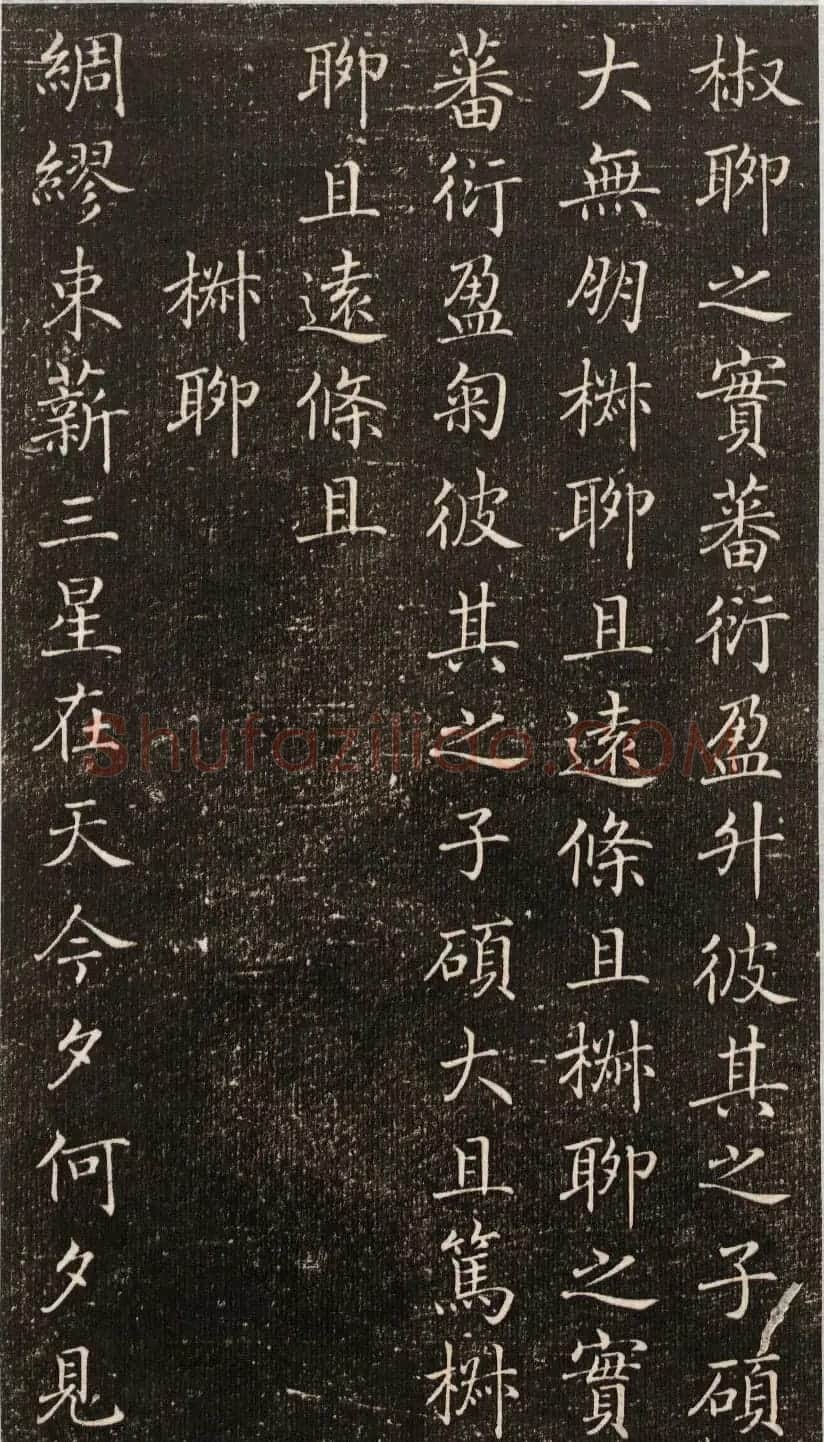 椒聊之實蕃衍盈升彼其之子碩
大無朋椒聊且遠條且椒聊之實
蕃衍盈匊彼其之子碩大且篤椒
聊且遠條且
椒聊
綢繆束薪三星在天今夕何夕見
Shufaziliao.COM